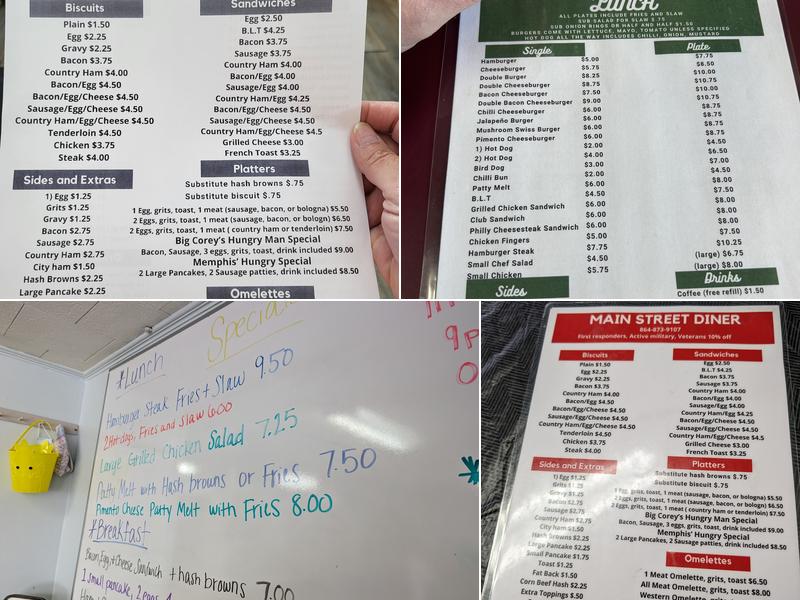 Biscuits
Plain $1.50
Egg $2.25
Gravy $2.25
Bacon $3.75
Country Ham $4.00
Bacon/Egg $4.50
Bacon/Egg/Cheese $4.50
Sausage/Egg/Cheese $4.50
Country Ham/Egg/Cheese $4.50
Tenderloin $4.50
Chicken $3.75
Steak $4.00
Sides and Extras
1) Egg $1.25
Grits $1.25
Gravy $1.25
Bacon $2.75
Sausage $2.75
Country Ham $2.75
City ham $1.50
Hash Browns $2.25
Large Pancake $2.25
Sandwiches
Egg $2.50
B.L.T $4.25
Bacon $3.75
Sausage $3.75
Country Ham $4.00
Bacon/Egg $4.00
Sausage/Egg $4.00
Country Ham/Egg $4.25
Bacon/Egg/Cheese $4.50
Sausage/Egg/Cheese $4.50
Country Ham/Egg/Cheese $4.5
Grilled Cheese $3.00
French Toast $3.25
Platters
Substitute hash browns $.75
Substitute biscuit $.75
1 Egg, grits, toast, 1 meat (sausage, bacon, or bologna) $5.50
2 Eggs, grits, toast, 1 meat (sausage, bacon, or bologna) $6.50
2 Eggs, grits, toast, 1 meat ( country ham or tenderloin) $7.50
Big Corey's Hungry Man Special
Bacon, Sausage, 3 eggs, grits, toast, drink included $9.00
Memphis' Hungry Special
2 Large Pancakes, 2 Sausage patties, drink included $8.50
Omelettes
Lunch
ALL PLATES INCLUDE FRIES AND SLAW
SUB SALAD FOR SLAW $.75
SUB ONION RINGS OR HALF AND HALF $1.50
BURGERS COME WITH LETTUCE, MAYO, TOMATO UNLESS SPECIFIED
HOT DOG ALL THE WAY INCLUDES CHILLI, ONION, MUSTARD
Single
Hamburger
Cheeseburger
Double Burger
Double Cheeseburger
Bacon Cheeseburger
Double Bacon Cheeseburger
Chilli Cheeseburger
Jalapeño Burger
Mushroom Swiss Burger
Pimento Cheeseburger
1) Hot Dog
2) Hot Dog
Bird Dog
Chilli Bun
Patty Melt
B.L.T
Grilled Chicken Sandwich
Club Sandwich
Philly Cheesesteak Sandwich
Chicken Fingers
Hamburger Steak
Small Chef Salad
Small Chicken
$5.00
$5.75
$8.25
$8.75
$7.50
$9.00
$6.00
$6.00
$6.00
$6.00
$2.00
$4.00
$3.00
$2.00
$6.00
$4.50
$6.00
$6.00
$6.00
$5.00
$7.75
$4.75
$5.75
Plate
$7.75
$8.50
$10.00
$10.75
$10.00
$10.75
$8.75
$8.75
$8.75
$8.75
$4.50
$6.50
$7.00
$4.50
$8.00
$7.50
$8.00
$8.00
$8.00
$7.50
$10.25
(large) $6.75
(large) $8.00
Sides
Drinks
Coffee (free refill) $1.50
*Lunch Specials
Hamburger Steak Fries + Slaw 9.50
2 Hot dogs, Fries and Slaw 6.00
Large Grilled Chicken Salad 7.25
Patty Melt with Hash browns or Fries 7.50
Pimento Cheese Patty Melt with Fries 8.00
*Breakfast
Bacon Egg + Cheese Sandwich + hash browns 7.00
1 small pancake, 2 eggs
MAIN STREET DINER
864-873-9107
First responders, Active military, Veterans 10% off
Biscuits
Plain $1.50
Egg $2.25
Gravy $2.25
Bacon $3.75
Country Ham $4.00
Bacon/Egg $4.50
Bacon/Egg/Cheese $4.50
Sausage/Egg/Cheese $4.50
Country Ham/Egg/Cheese $4.50
Tenderloin $4.50
Chicken $3.75
Steak $4.00
Sides and Extras
1) Egg $1.25
Grits $1.25
Gravy $1.25
Bacon $2.75
Sausage $2.75
Country Ham $2.75
City ham $1.50
Hash Browns $2.25
Large Pancake $2.25
Small Pancake $1.75
Toast $1.25
Fat Back $1.50
Corn Beef Hash $2.25
Extra Toppings $.50
Sandwiches
Egg $2.50
B.L.T $4.25
Bacon $3.75
Sausage $3.75
Country Ham $4.00
Bacon/Egg $4.00
Sausage/Egg $4.00
Country Ham/Egg $4.25
Bacon/Egg/Cheese $4.50
Sausage/Egg/Cheese $4.50
Country Ham/Egg/Cheese $4.5
Grilled Cheese $3.00
French Toast $3.25
Platters
Substitute hash browns $.75
Substitute biscuit $.75
1 Egg, grits, toast, 1 meat (sausage, bacon, or bologna) $5.50
2 Eggs, grits, toast, 1 meat (sausage, bacon, or bologna) $6.50
2 Eggs, grits, toast, 1 meat ( country ham or tenderloin) $7.50
Big Corey's Hungry Man Special
Bacon, Sausage, 3 eggs, grits, toast, drink included $9.00
Memphis' Hungry Special
2 Large Pancakes, 2 Sausage patties, drink included $8.50
Omelettes
1 Meat Omelette, grits, toast $6.50
All Meat Omelette, grits, toast $8.00
Western Omelette, grits